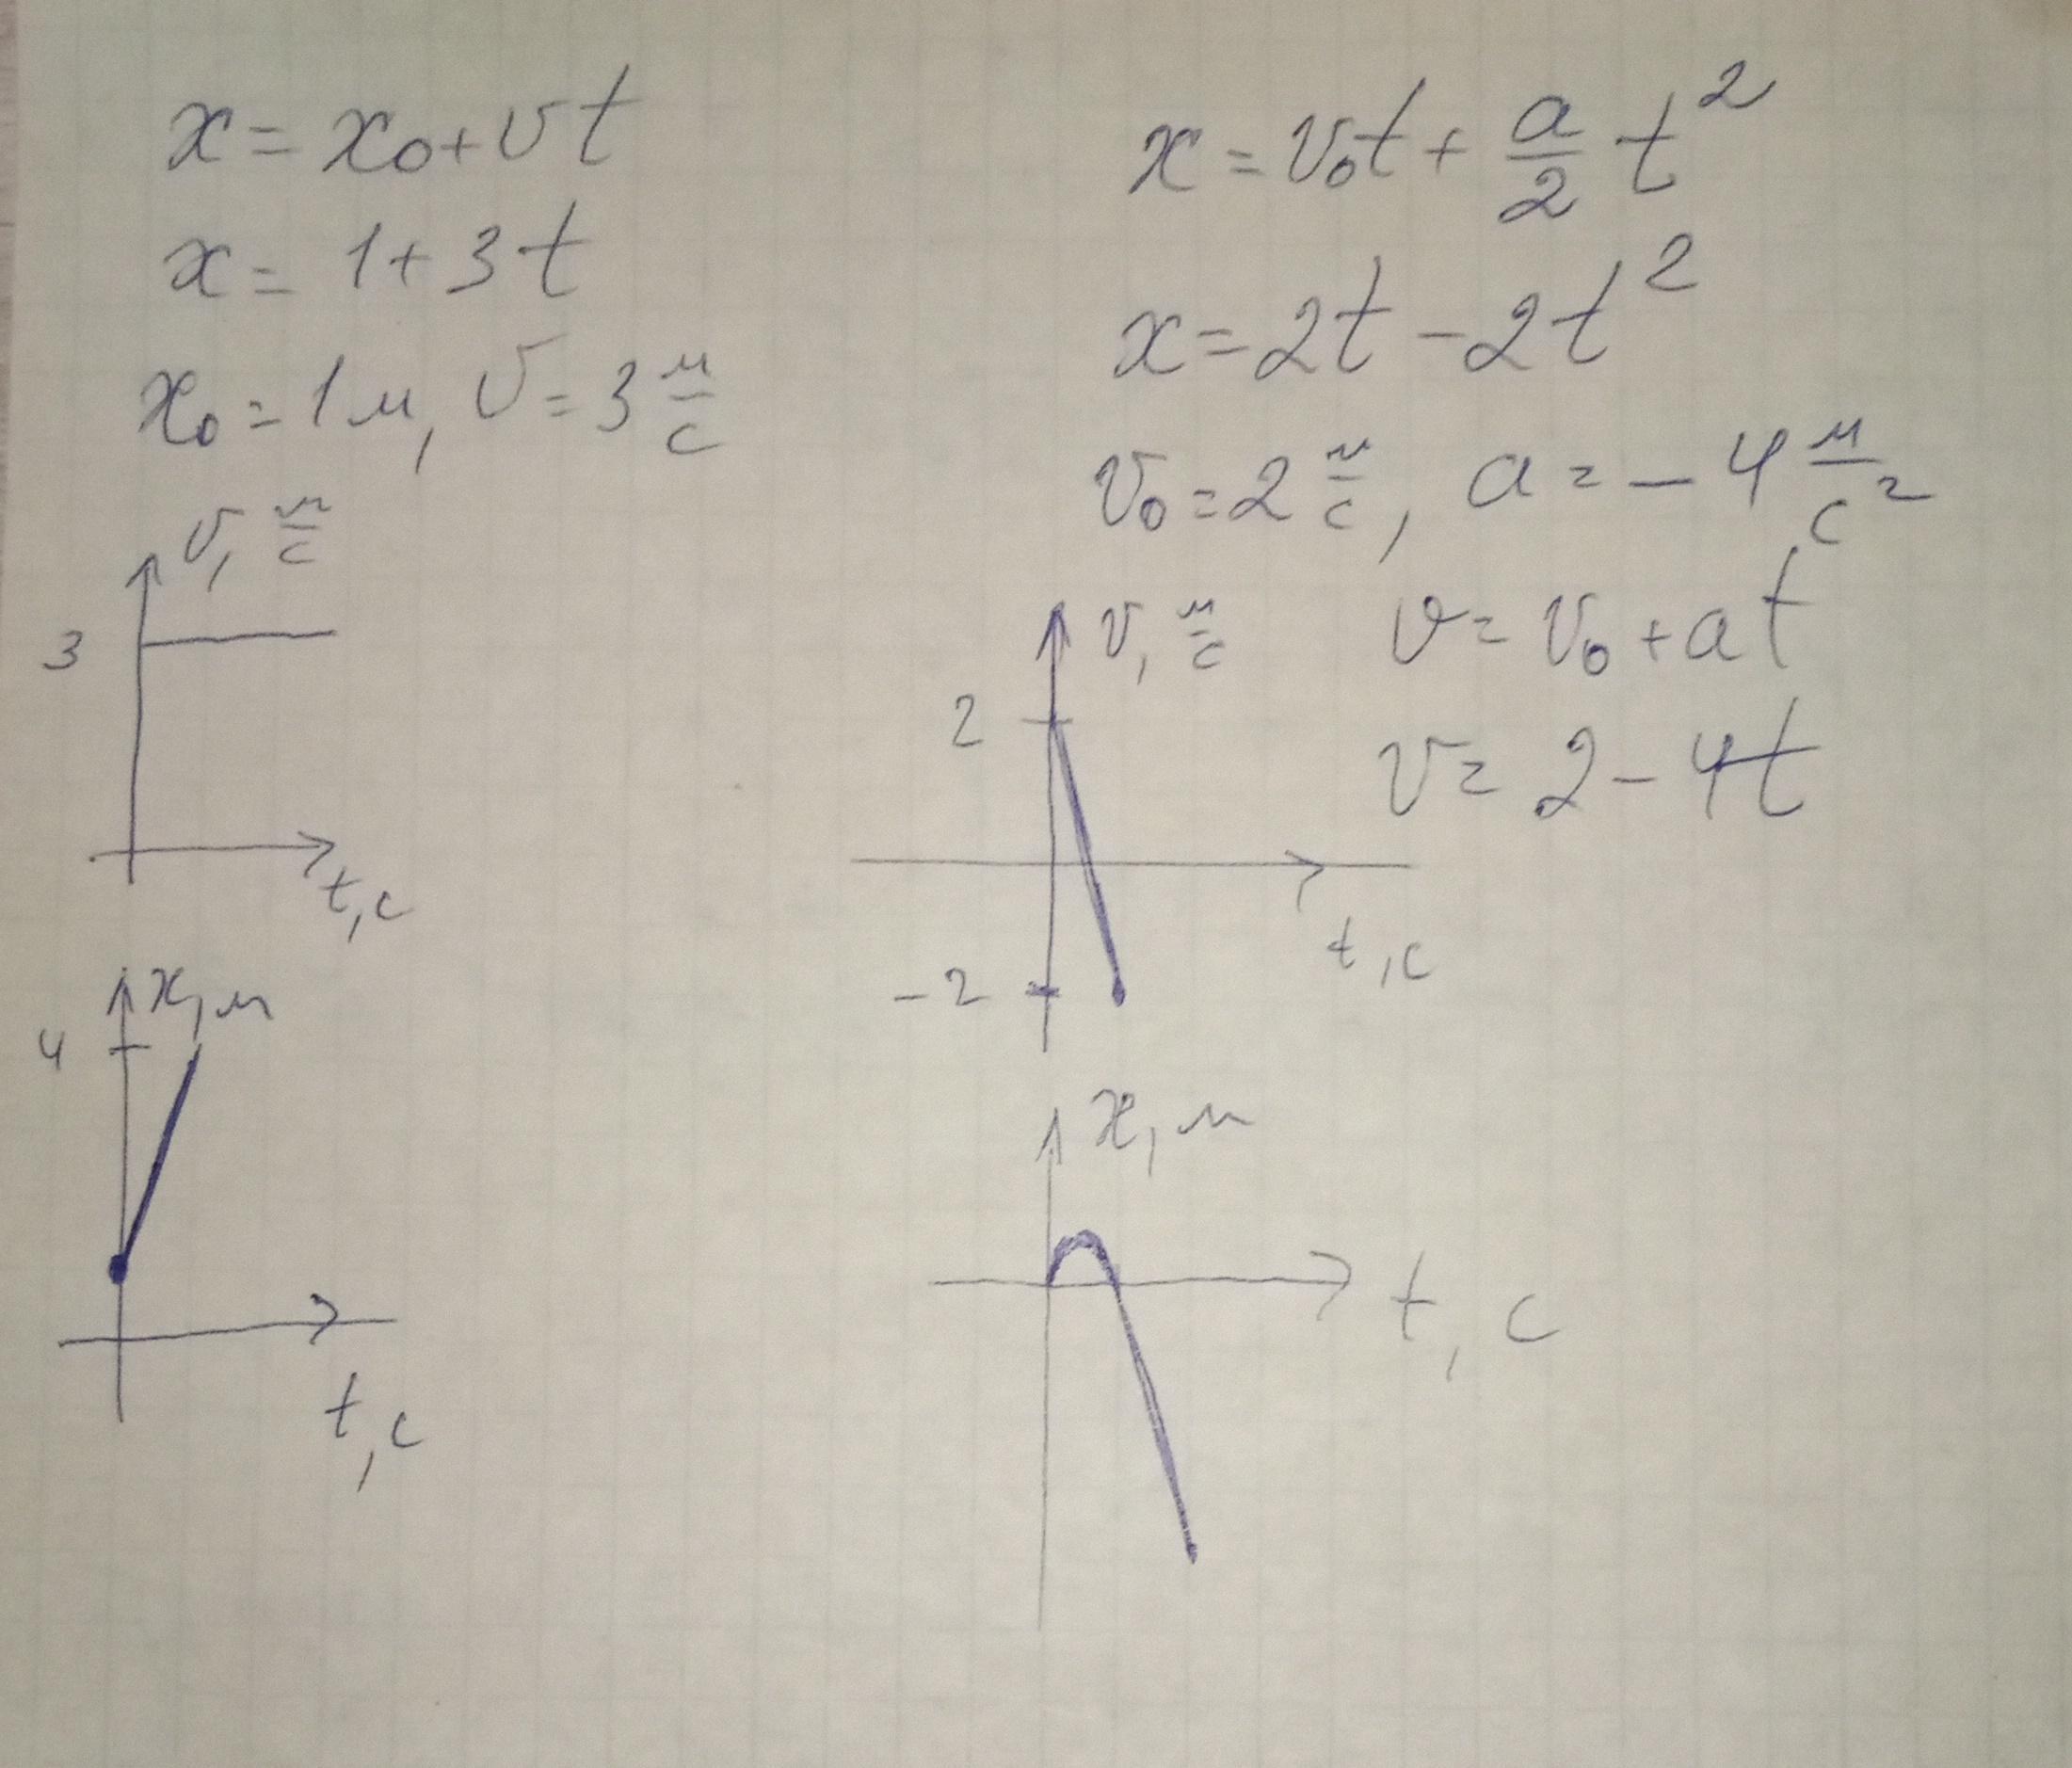 x = x₀ + υt
x = 1 + 3t
x₀ = 1 м, υ = 3 м/с
υ, м/с
3
t, с
x, м
4
t, с
x = υ₀t + a/2 t²
x = 2t - 2t²
υ₀ = 2 м/с, a = - 4 м/с²
υ, м/с
υ = υ₀ + at
2
υ = 2 - 4t
t, с
-2
x, м
t, с